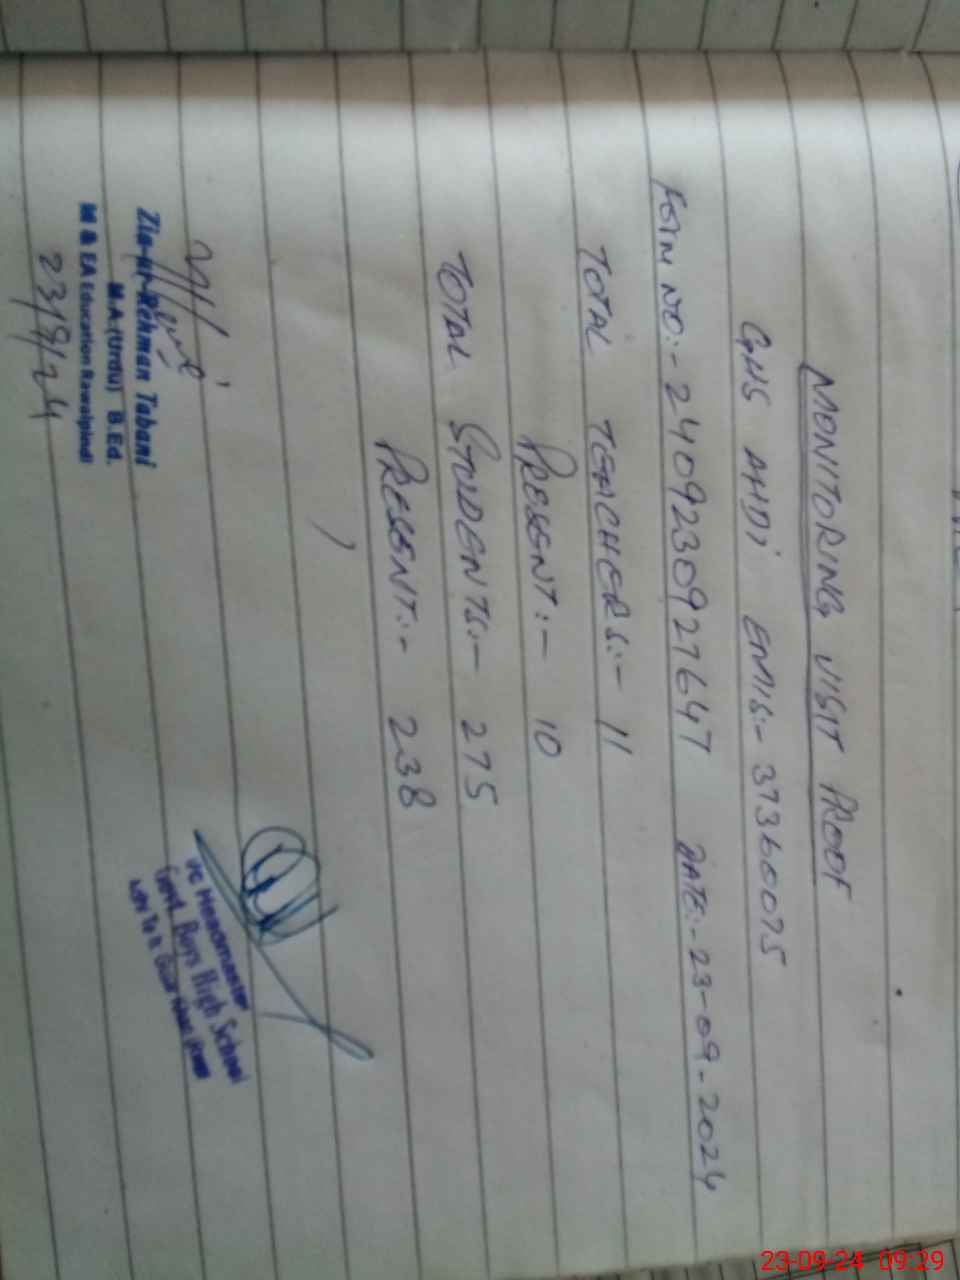 MONITORING VISIT PROOF
GHS AHDI EMIS:- 37360075
FORM NO:- 2409230927647 DATE:- 23-09-2024
TOTAL TEACHERS:- 11
PRESENT:- 10
TOTAL STUDENTS:- 275
PRESENT:- 238
Zia-ur-Rehman Tabani
M.A.(Urdu) B.Ed.
M & EA Education Rawalpindi
23/9/24
I/C Headmaster
Govt. Boys High School
23-09-24 09:29